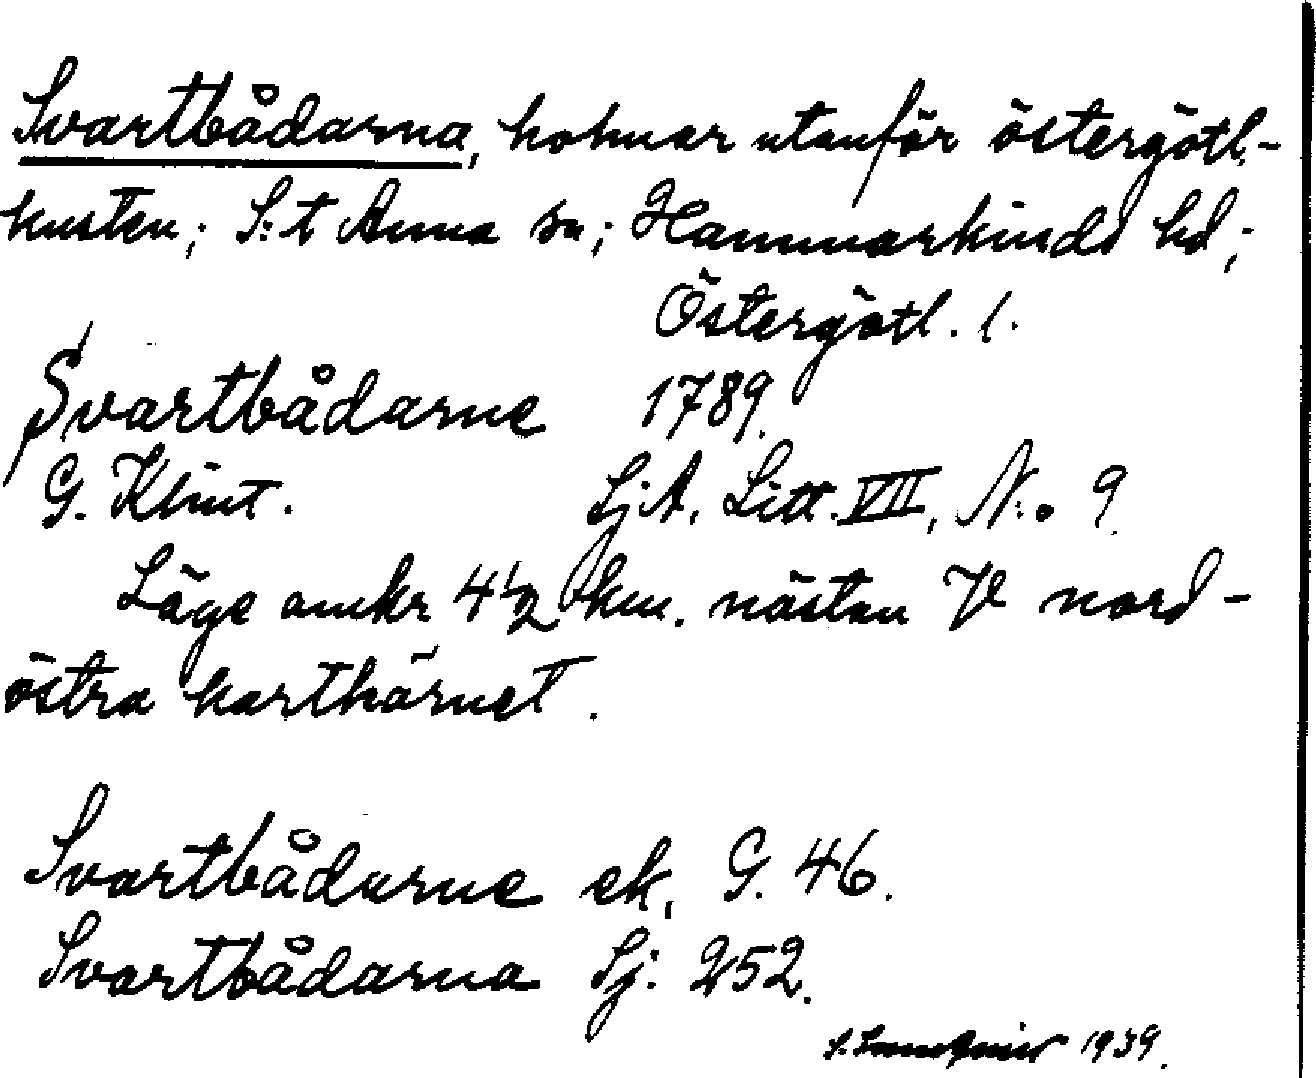 Svartbådarna, holmar utanför östergötl.-
kusten; S:t Anna sn; Hammarkinds hd;
Östergötl. l.
Svartbådarne 1789.
G. Klint. SjA, Litt. VII, N:o 9
Läge omkr 4 1/2 km. nästan V nord-
östra karthörnet.
Svartbådarne ek, G. 46.
Svartbådarna Sj. 252.
1939.